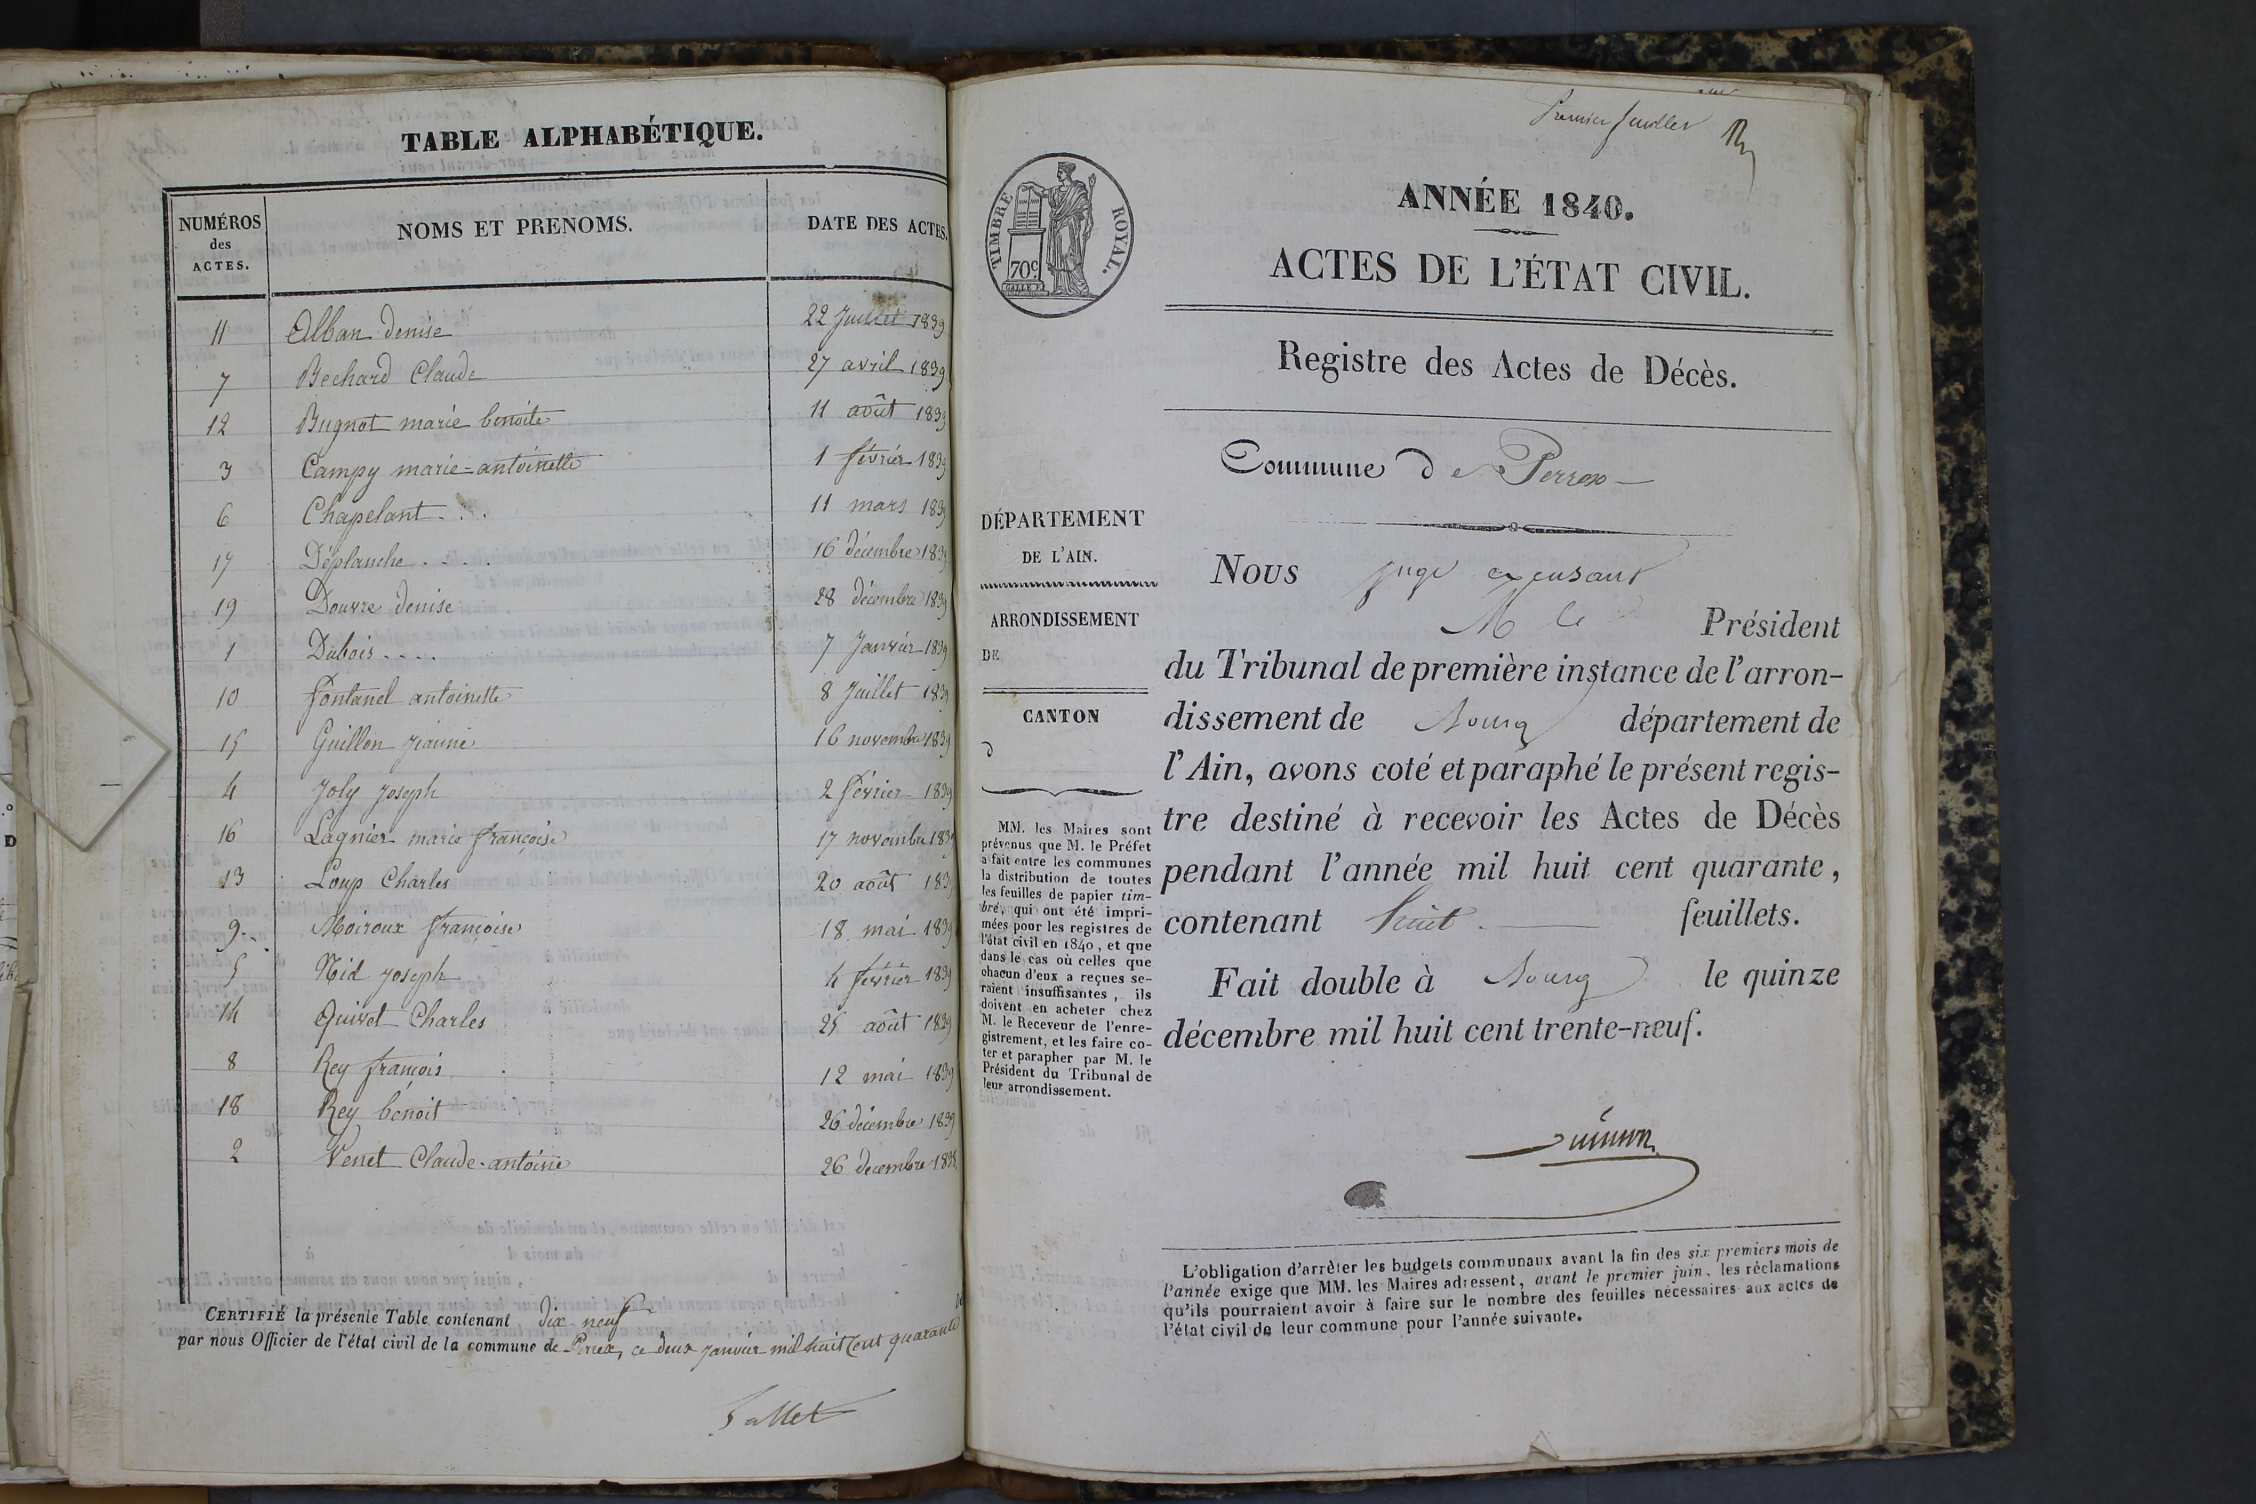 TABLE ALPHABÉTIQUE.
NUMÉROS des ACTES. NOMS ET PRENOMS. DATE DES ACTES.
11 Alban denise 22 Juillet 1839
7 Bechard Claude 27 avril 1839
12 Bugnot marie benoite 11 août 1839
3 Campy marie-antoinette 1 février 1839
6 Chapelant . . . 11 mars 1839
17 Déplanche . . . . 16 décembre 1839
19 Douvre denise 28 décembre 1839
1 Dubois . . . . 7 Janvier 1839
10 fontanel antoinette 8 Juillet 1839
15 Guillon jeanne 16 novembre 1839
4 Joly joseph 2 février 1839
16 Lagnier marie françoise 17 novembre 1839
13 Loup Charles 20 août 1839
9 Moiroux françoise 18 mai 1839
5 Nid joseph 4 février 1839
14 Quivet Charles 25 août 1839
8 Rey françois 12 mai 1839
18 Rey benoit 26 décembre 1839
2 Venet Claude-antoine 26 decembre 1838
CERTIFIÉ la présente Table contenant dix neuf
par nous Officier de l'état civil de la commune de Perrex, ce deux janvier mil huit Cent quarante
Premier feuillet
TIMBRE ROYAL.
70c
ANNÉE 1840.
ACTES DE L'ÉTAT CIVIL.
Registre des Actes de Décès.
Commune de Perrex
DÉPARTEMENT
DE L'AIN.
ARRONDISSEMENT
DE
CANTON
d
MM. les Maires sont
prévenus que M. le Préfet
a fait entre les communes
la distribution de toutes
les feuilles de papier tim-
bré, qui ont été impri-
mées pour les registres de
l'état civil en 1840, et que
dans le cas où celles que
chacun d'eux a reçues se-
raient insuffisantes, ils
doivent en acheter chez
M. le Receveur de l'enre-
gistrement, et les faire co-
ter et parapher par M. le
Président du Tribunal de
leur arrondissement.
Nous juge excusant
M le Président
du Tribunal de première instance de l'arron-
dissement de Bourg département de
l'Ain, avons coté et paraphé le présent regis-
tre destiné à recevoir les Actes de Décès
pendant l'année mil huit cent quarante,
contenant huit feuillets.
Fait double à Bourg le quinze
décembre mil huit cent trente-neuf.
L'obligation d'arrêter les budgets communaux avant la fin des six premiers mois de
l'année exige que MM. les Maires adressent, avant le premier juin, les réclamations
qu'ils pourraient avoir à faire sur le nombre des feuilles nécessaires aux actes de
l'état civil de leur commune pour l'année suivante.